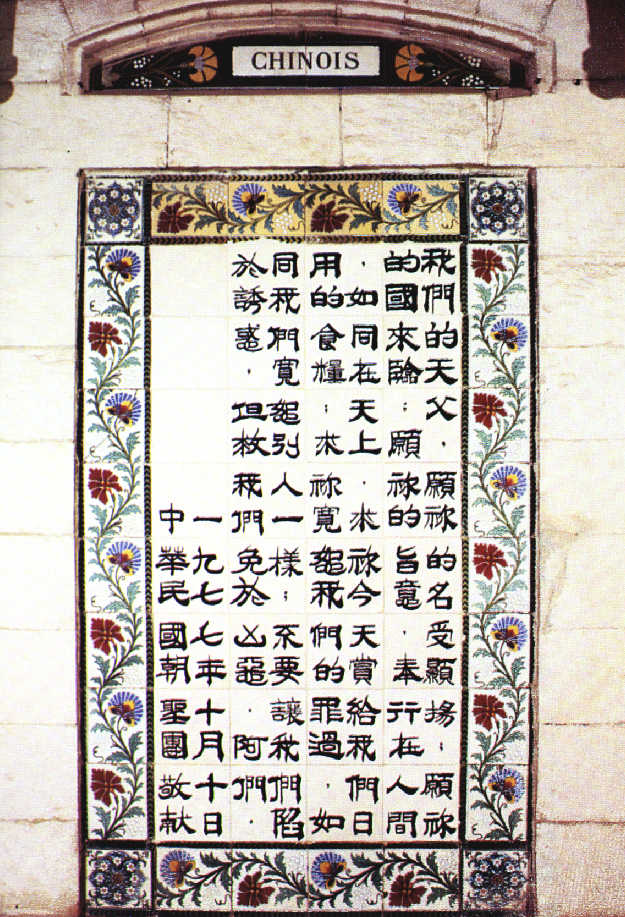 CHINOIS
我們的天父，願祢的名受顯揚；願祢
的國來臨；願祢的旨意，奉行在人間
，如同在天上，求祢今天賞給我們日
用的食糧；求祢寬恕我們的罪過，如
同我們寬恕別人一樣；不要讓我們陷
於誘惑，但救我們免於凶惡．阿們．
一九七七年十月十日
中華民國朝聖團敬献